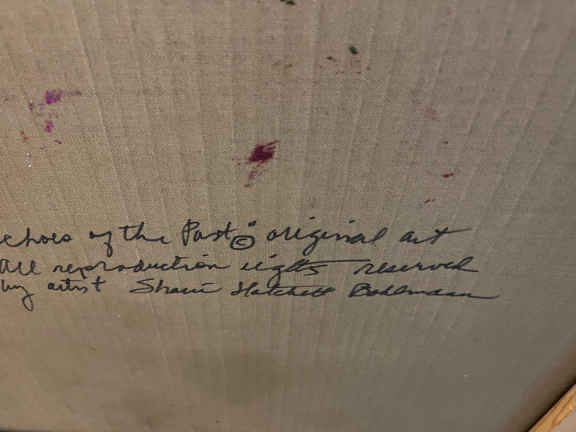 echoes of the Past" © original art
All reproduction rights reserved
by artist Shawn Hatchett Bollmann